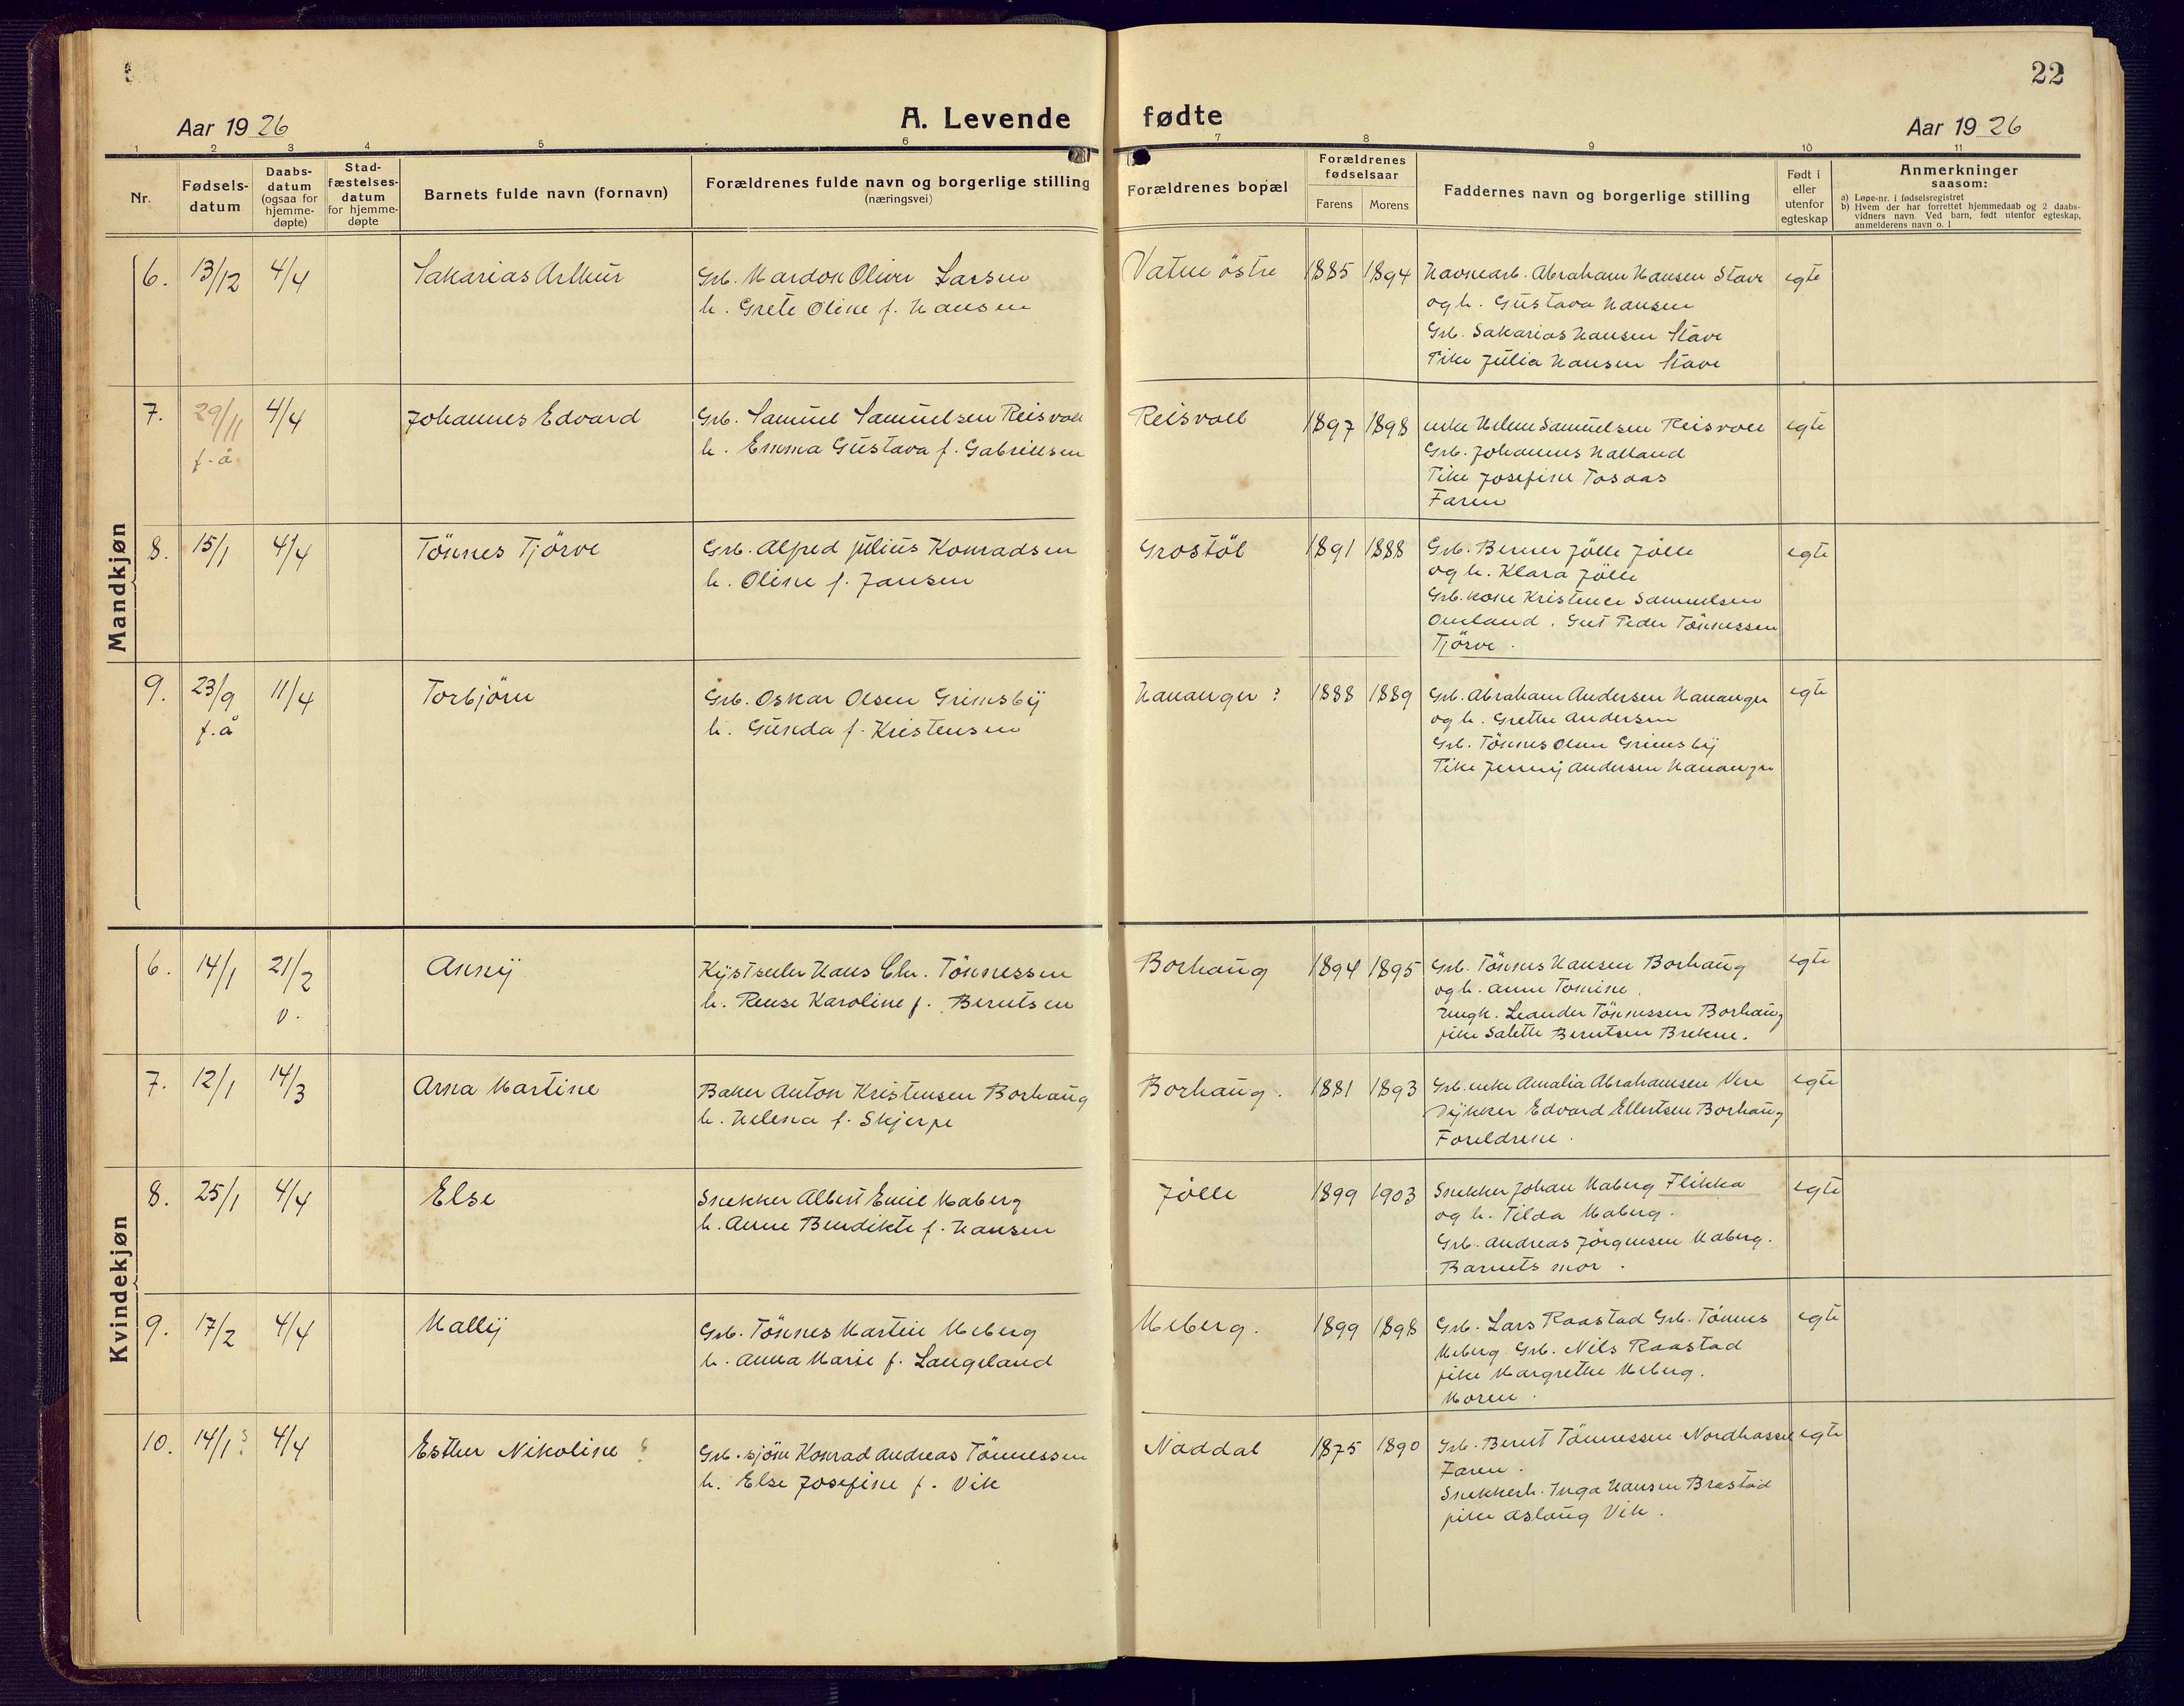 22
Aar 1926
A. Levende fødte
Aar 1926
1 2 3 4 5 6 7 8 9 10 11
Nr.
Fødsels-
datum
Daabs-
datum
(ogsaa for
hjemme-
døpte)
Stad-
fæstelses-
datum
for hjemme-
døpte
Barnets fulde navn (fornavn)
Forældrenes fulde navn og borgerlige stilling
(næringsvei)
Forældrenes bopæl
Forældrenes
fødselsaar
Farens Morens
Faddernes navn og borgerlige stilling
Født i
eller
utenfor
egteskap
Anmerkninger
saasom:
a) Løpe-nr. i fødselsregistret
b) Hvem der har forrettet hjemmedaab og 2 daabs-
vidners navn. Ved barn, født utenfor egteskap,
anmelderens navn o. l
Mandkjøn
6. 13/12 4/4 Sakarias Arthur
Grb. Mardon Oliver Larsen
h. Grete Oline f. Hansen
Vatne östre 1885 1894
Havnearb. Abraham Hansen Stave
og h. Gustava Hansen
Grb. Sakarias Hansen Stave
Pike Julia Hansen Stave
egte
7. 29/11 4/4 Johannes Edvard
f. å
Grb. Samuel Samuelsen Reisvoll
h. Emma Gustava f. Gabrielsen
Reisvoll 1897 1898
enke Helene Samuelsen Reisvoll
Grb. Johannes Halland
Pike Josefine Tosaas
Faren
egte
8. 15/1 4/4 Tönnes Tjörve
Grb. Alfred Julius Konradsen
h. Oline f. Jansen
Grostöl 1891 1888
Grb. Berner Jölle Jölle
og h. Klara Jölle
Grb. kone Kristence Samuelsen
Omland. Gut Peder Tönnessen
Tjörve.
egte
9. 23/9 11/4 Torbjörn
f. å
Grb. Oskar Olsen Grimsby
h. Gunda f. Kristensen
Hananger ? 1888 1889
Grb. Abraham Andersen Hananger
og h. Grethe Andersen
Grb. Tönnes Olsen Grimsby
Pike Jenny Andersen Hananger
egte
Kvindekjøn
6. 14/1 21/2 Anny
v.
Kystseiler Hans Chr. Tönnessen
h. Rense Karoline f. Berntsen
Borhaug 1894 1895
Grb. Tönnes Hansen Borhaug
og h. Anne Tomine.
Ungk. Leander Tönnessen Borhaug
pike Salette Berntsen Brekne.
egte
7. 12/1 14/3 Arna Martine
Baker Anton Kristensen Borhaug
h. Helena f. Skjerpe
Borhaug. 1881 1893
Grb. enke Amalia Abrahamsen Vere
Dykker Edvard Ellertsen Borhaug
Foreldrene.
egte
8. 25/1 4/4 Else
Snekker Albert Emil Maberg
h. Anne Bendikte f. Hansen
Jölle 1899 1903
Snekker Johan Maberg Flikka
og h. Tilda Maberg.
Grb. Andreas Jörgensen Maberg.
Barnets mor.
egte
9. 17/2 4/4 Mally
Grb. Tönnes Martin Meberg
h. Anna Marie f. Langeland
Meberg. 1899 1898
Grb. Lars Raastad Grb. Tönnes
Meberg Grb. Nils Raastad
pike Margrethe Meberg.
Moren.
egte
10. 14/1? 4/4 Esther Nikoline ?
Grb. sjöm Konrad Andreas Tönnessen
h. Else Josefine f. Vik
Naddal 1875 1890
Grb. Bernt Tönnessen Nordhassel
Faren.
Snekkerh. Inga Hansen Brastad
pike Aslaug Vik.
egte